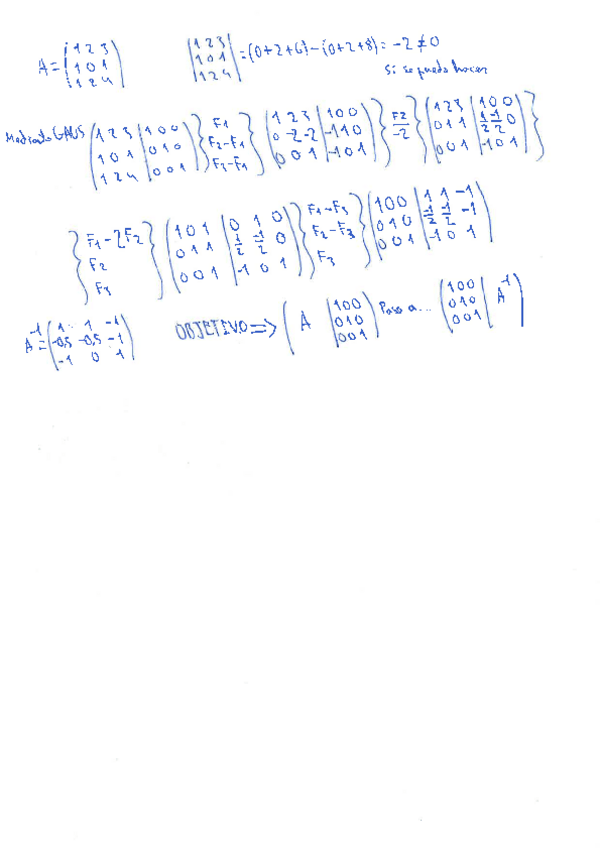 A = (1 2 3 / 1 0 1 / 1 2 4) |1 2 3 / 1 0 1 / 1 2 4| = (0+2+6) - (0+2+8) = -2 ≠ 0
Si se puede hacer
Mediante GAUS (1 2 3 | 1 0 0 / 1 0 1 | 0 1 0 / 1 2 4 | 0 0 1) } F1 / F2-F1 / F3-F1 } (1 2 3 | 1 0 0 / 0 -2 -2 | -1 1 0 / 0 0 1 | -1 0 1) } F2/-2 } (1 2 3 | 1 0 0 / 0 1 1 | 1/2 -1/2 0 / 0 0 1 | -1 0 1) }
} F1-2F2 / F2 / F3 } (1 0 1 | 0 1 0 / 0 1 1 | 1/2 -1/2 0 / 0 0 1 | -1 0 1) } F1-F3 / F2-F3 / F3 } (1 0 0 | 1 1 -1 / 0 1 0 | -1/2 -1/2 -1 / 0 0 1 | -1 0 1)
A⁻¹ = (1 1 -1 / -0,5 -0,5 -1 / -1 0 1) OBJETIVO => (A | 1 0 0 / 0 1 0 / 0 0 1) Paso a... (1 0 0 / 0 1 0 / 0 0 1 | A⁻¹)